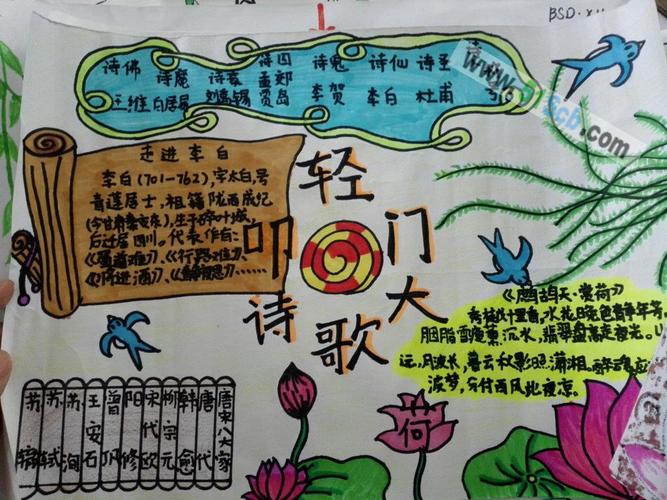 BSD·
诗佛 诗魔 诗豪 诗囚 诗鬼 诗仙 诗圣
王维 白居易 刘禹锡 孟郊 贾岛 李贺 李白 杜甫
www.
cb.com
走进李白
李白(701-762),字太白,号
青莲居士,祖籍陇西成纪
(今甘肃秦安东),生于碎叶城,
后迁居四川。代表作有:
《蜀道难》、《行路难》、
《将进酒》、《静夜思》......
轻
叩
诗
歌
大
门
《鹧鸪天·赏荷》
秀樾横塘十里香,水花晚色静年芳。
胭脂雪瘦熏沉水,翡翠盘高走夜光。
远,风波长,暮云秋影照潇湘。醉魂应
波梦,分付西风此夜凉。
荷
唐宋八大家
唐代
韩愈
柳宗元
宋代欧
阳修
曾巩
王安石
苏洵
苏轼
苏辙